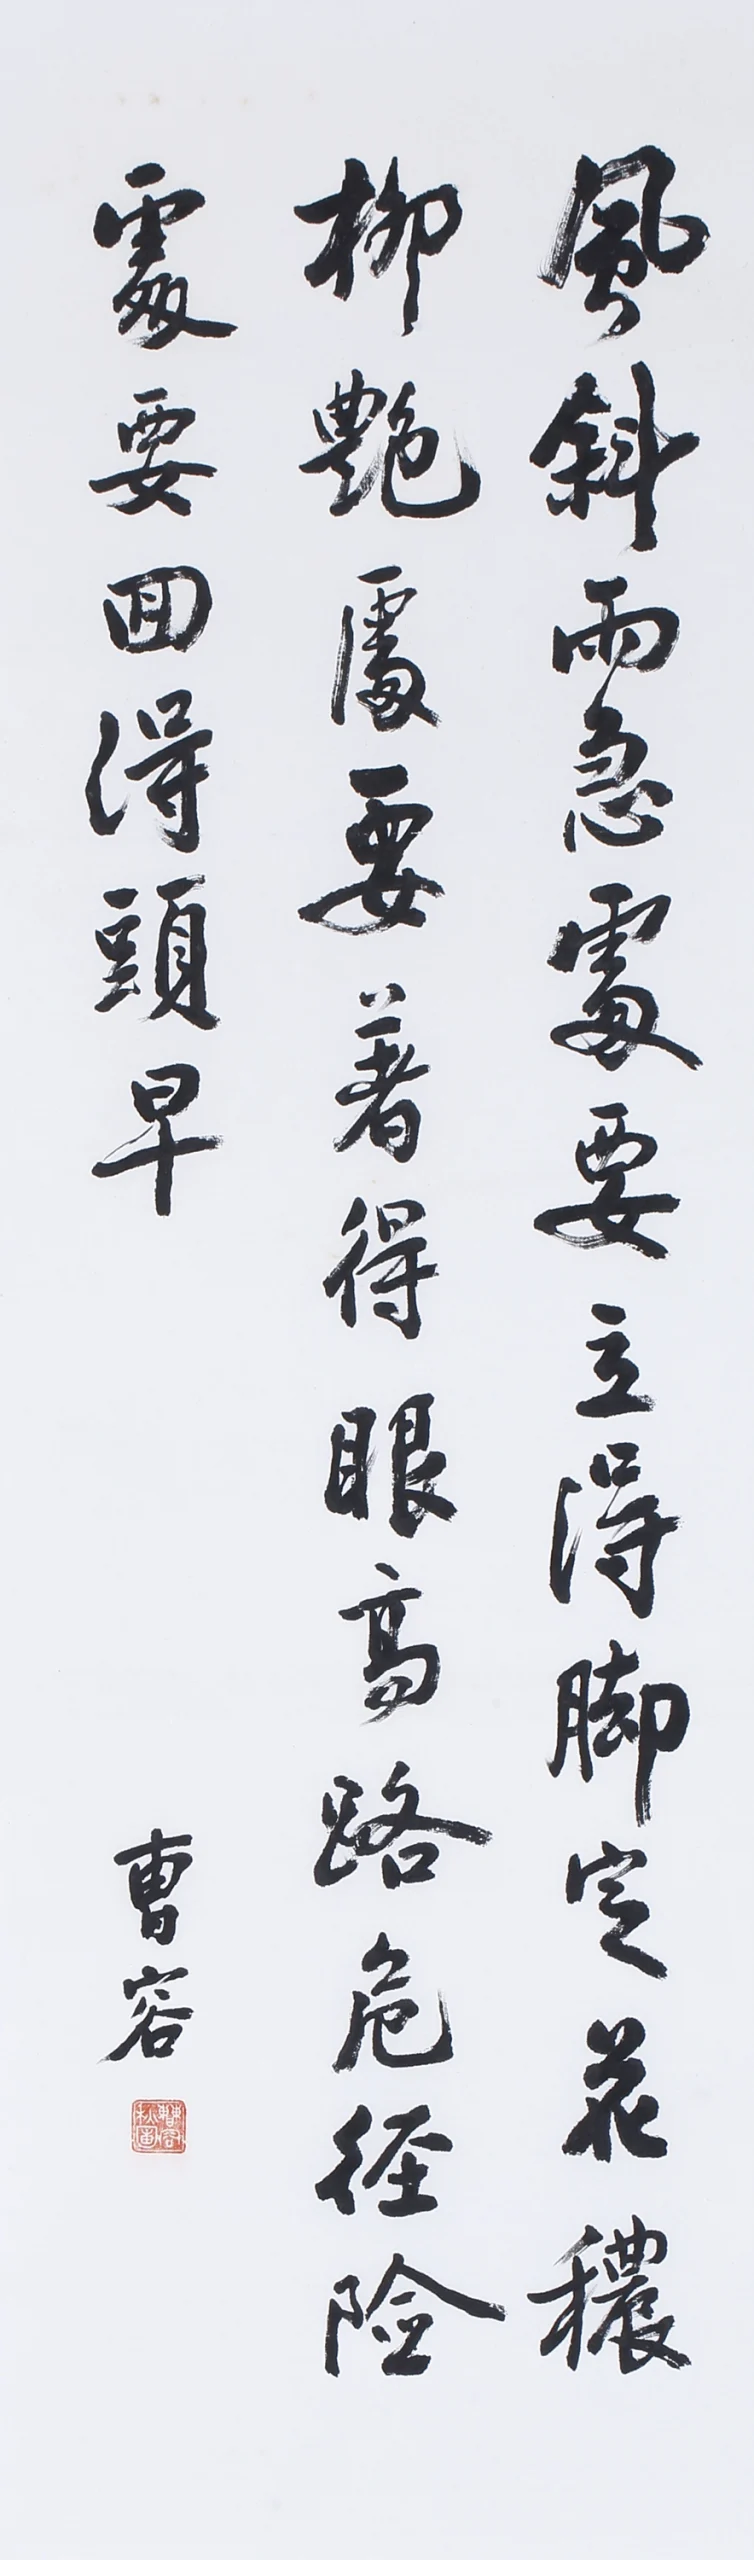 風斜雨急處要立得脚定花穠
柳艷處要著得眼高路危徑險
處要回得頭早
曹容
曹容秋圃